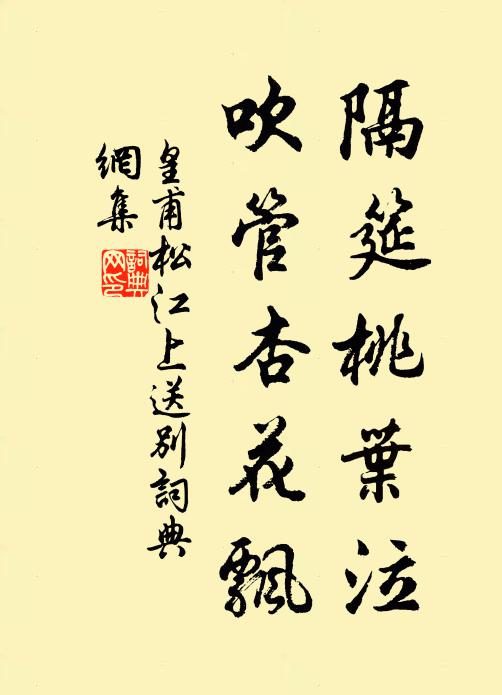 隔筵桃葉泣
吹管杏花飄
皇甫松江上送別詞典
網集
詞典
网印